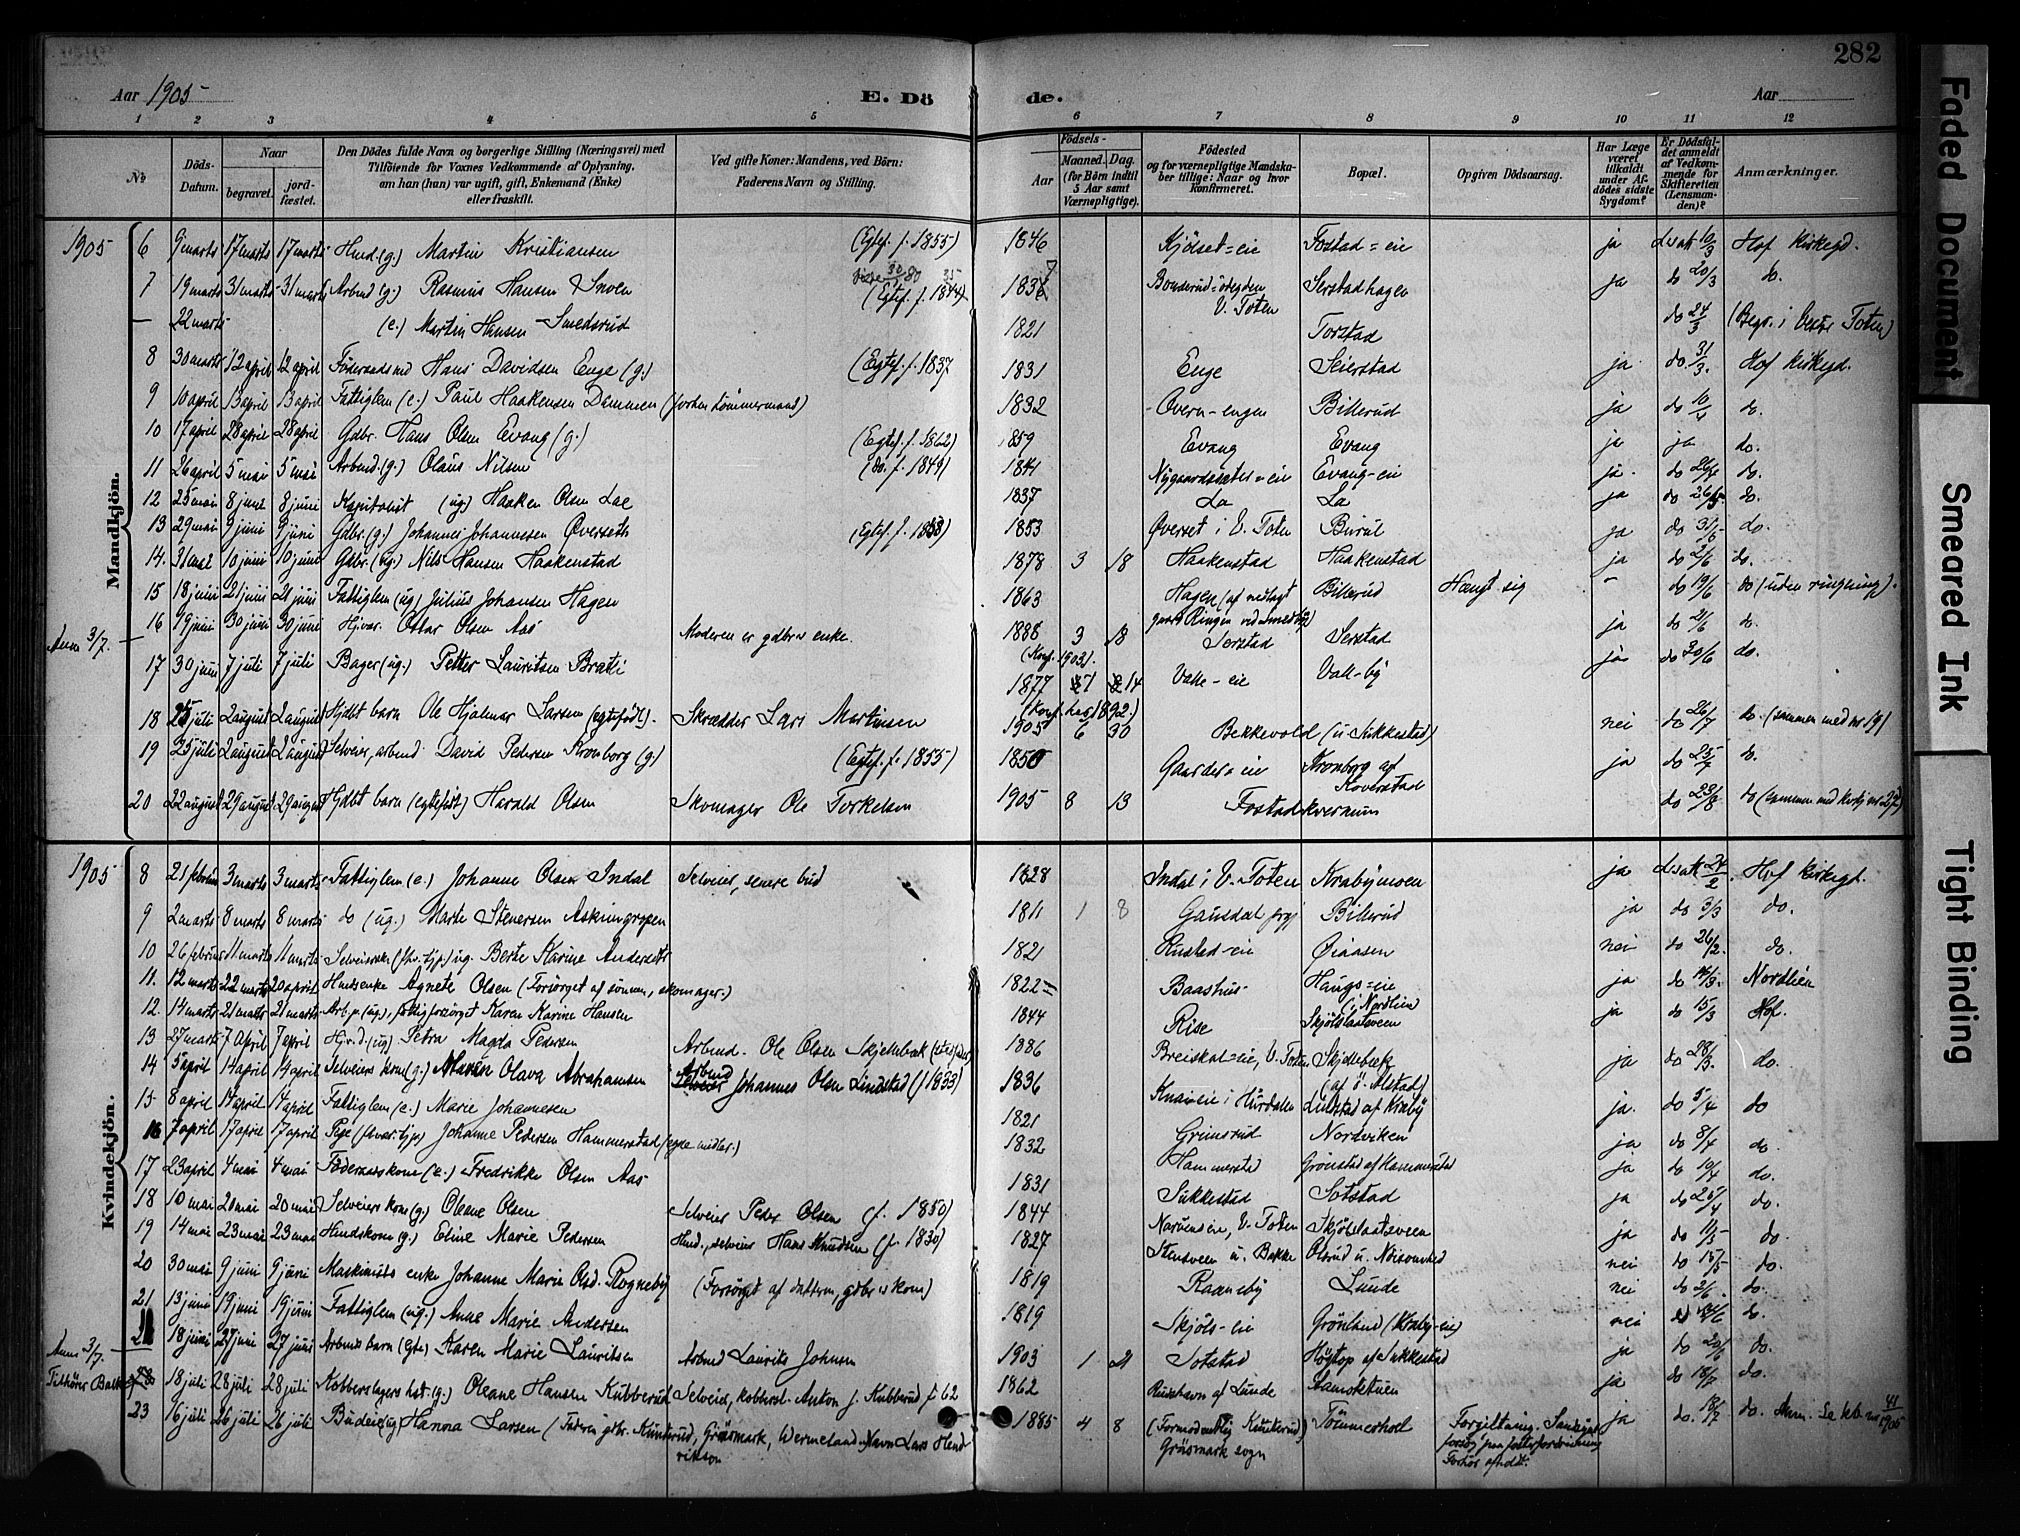 282
Aar 1905
E. Dö
de.
Aar
1 2 3 4 5 6 7 8 9 10 11 12
No
Döds-Datum.
Naar
begravet.
jord-fæstet.
Den Dödes fulde Navn og borgerlige Stilling (Næringsvei) med
Tilföiende for Voxnes Vedkommende af Oplysning,
om han (hun) var ugift, gift, Enkemand (Enke)
eller fraskilt.
Ved gifte Koner: Mandens, ved Börn:
Faderens Navn og Stilling.
Födsels-
Aar
Maaned. Dag.
(for Börn indtil
5 Aar samt
Værnepligtige).
Födested
og for værnepligtige Mandska-
ber tillige: Naar og hvor
konfirmeret.
Bopæl.
Opgiven Dödsaarsag.
Har Læge
været
tilkaldt
under Af-
dödes sidste
Sygdom?
Er Dödsfal-
det anmeldt
af Vedkom-
mende for
Skifteretten
(Lensman-
den)?
Anmærkninger.
Mandkjön.
1905 6 9 marts 17 marts 17 marts Hmd. (g.) Martin Kristiansen (Egtef. f. 1855) 1846 Kjölset=eie Fostad=eie ja d.s att 10/3 Hof kirkegd.
7 19 marts 31 marts 31 marts Arbmd (g.) Rasmus Hansen (Egtef. f. 1844) Bonderud V. Toten Serstadhagen ja do 20/3 do.
— 22 marts (e.) Martin Hansen Smedsrud 1821 Torstad do 24/3 (Begr. i Vestre Toten)
8 30 marts 12 april 12 april Föderaadsmd Hans Davidsen Enge (g.) (Egtef. f. 1837 1831 Enge Seierstad ja do 31/3. Hof kirkegd.
9 10 april 13 april 13 april Fattiglem (e.) Paul Haakensen Dammen (forhen tömmermand) 1832 Overn-engen Billerud ja do 10/4 do.
10 17 april 28 april 28 april Gdbr. Hans Olsen Evang (g.) (Egtef. f. 1862) 1859 Evang Evang ja ja do.
11 26 april 5 mai 5 mai Arbmd. (g.) Olaus Nilsen (do. f. 1849) 1841 Nygaardssæter=eie Evang-eie ja. do 26/4 do.
12 25 mai 8 juni 8 juni Kapitalist (ug) Haaken Olsen Lae 1837 La La ja do 26/5. do.
13 29 mai 9 juni 9 juni Gdbr. (g.) Johannes Johannessen Øverseth (Egtef. f. 1853) 1853 Øverset i V. Toten Burul ja do 31/5 do.
14. 31 mai 10 juni 10 juni Gdbr. (ug.) Nils Hansen Haakenstad 1878 3 18 Haakenstad Haakenstad ja do 2/6 do.
15 18 juni 21 juni 21 juni Fattiglem (ug) Julius Johansen Hagen 1863 Hagen (af nedlagt Billerud Hængt sig - do 19/6 do (uden ringning).
gaard Ringen ved Smedby)
16 19 juni 30 juni 30 juni Hjvar. Oskar Olsen Aas Moderen er gdbr.s enke. 1888 3 18 Serstad Serstad ja do 21/6 do.
Anm 3/7.
(Konf. 1903).
17 30 juni 7 juli 7 juli Bager (ug.) Petter Lauritsen Brati 1877 14 Valle-eie Vall-by ja do 30/6 do.
(Konf. 1892.)
18 25 juli 2 august 2 august Hjdbt barn Ole Hjalmar Larsen (egtefödt). Skrædder Lars Martinsen 1905 6 30 Bekkevold (u Sukkestad) nei do 26/7 do. (sammen med nr 19)
19 23 juli 2 august 2 august Selveier, arbmd David Pedersen Kronborg (g.) (Egtef. f. 1855) 1850 Gaarder=eie Kronborg af ja do 25/7 do.
Koverstad
20 22 august 29 august 29 august Hjdbt barn (egtefödt) Harald Olsen Skomager Ole Torkelsen 1905 8 13 Fostadkvernum do 23/8 do (sammen med
Kvindekjön.
1905 8 21 februar 3 marts 3 marts Fattiglem (e.) Johanne Olsen Indal Selveier, senere bud 1828 Indal i V. Toten Krabymoen ja d.s att 24/2. Hof kirkegd.
9 2 marts 8 marts 8 marts do (ug.) Marte Stenersen Askimgropen 1811 1 8 Gausdal prgj Billerud ja do 3/3 do.
10 26 februar 11 marts 11 marts (fhv. tjp.) ug. Berte Karine Andersets 1821 Rustad-eie Øiaasen nei do 26/2. do.
11. 12 marts 22 marts 20 april Husmdsenke Agnete Olsen (Forsörget af sönnen, skomager.) 1822 Baashus- Haugs=eie ja do 14/3. Nordlien
(i Nordlien)
12. 14 marts 21 marts 21 marts Arb.p. (ug.), fattigforsörget Karen Karine Hansen 1844 Rise Skjölslaatsveen ja do 15/3 Hof.
13 27 marts 7 april 7 april Hjv.d. (ug) Petra Magda Pedersen Arbmd. Ole Olsen Skjellebæk 1886 Breiskal=eie, V. Toten Skjellebæk ja do 28/3. do.
(af ö. Alstad)
14 5 april 14 april 14 april Selveiers kone (g.) Maren Olava Abrahamsen Arbmd Johannes Olsen Lindstad (f 1833) 1836 i Hurdalen Lindstad af Kraby ja. do 5/4 do
15 8 april 14 april 14 april Fattiglem (e.) Marie Johannesen 1821 Grimsrud Nordviken ja do 8/4 do.
16 7 april 17 april 17 april Pige (fhvar. tjp.) Johanne Pedersen Hammerstad (egne midler.) 1832 Hammerstad Grönstad af Hammerstad ja do 10/4 do.
17 23 april 4 mai 4 mai Föderaadskone (e.) Fredrikke Olsen Aas 1831 Sukkestad Sotstad ja do 25/4 do.
18 10 mai 20 mai 20 mai Selveiers kone (g.) Oleane Olsen Selveier Peder Olsen (f. 1850) 1844 V. Toten Skjölslaatsveen ja do 11/5 do.
19 14 mai 23 mai 23 mai Husmdskone (g.) Eline Marie Pedersen Hmd., selveier Hans Knudsen (f. 1830) 1827 Stensveen u. Bakke Olsrud u. nei do 15/5 do.
20 30 mai 9 juni 9 juni Maskinists enke Johanne Marie Olsd. Rogneby (Forsörget af datteren, gdbr.s kone) 1819 Raaneby Lunde nei do 2/6. do.
21 13 juni 19 juni 19 juni Fattiglem (ug.) Anne Marie Andersen 1819 Skjöls-eie Grönlund (Kraby-eie) nei do 14/6 do.
Anm 3/7. 18 juni 27 juni 27 juni Arbmds barn (gte) Karen Marie Lauritsen Arbmd Laurits Johnsen 1903 1 21 Sotstad Högtop af Sukkestad ja do 20/6 do.
Tilhörer Balke 18 juli 28 juli 28 juli Kobberslagers hst. (g.) Oleane Hansen Kubberud Selveier, kobbersl. Anton J. Kubberud f. 62 1862 af Lunde Stamoktuen ja do 18/7 do.
23 16 juli 26 juli 26 juli Budeie (ug) Hanna Larsen (Faderen gdbr. Gräsmark, Wermeland. Navn Lars Hend 1885 4 8 (Formodentlig Tömmerhol Forgiftning. ja do. 18/7 do. Anm. Se kb. nr 41/1905
rikson Gräsmark sogn